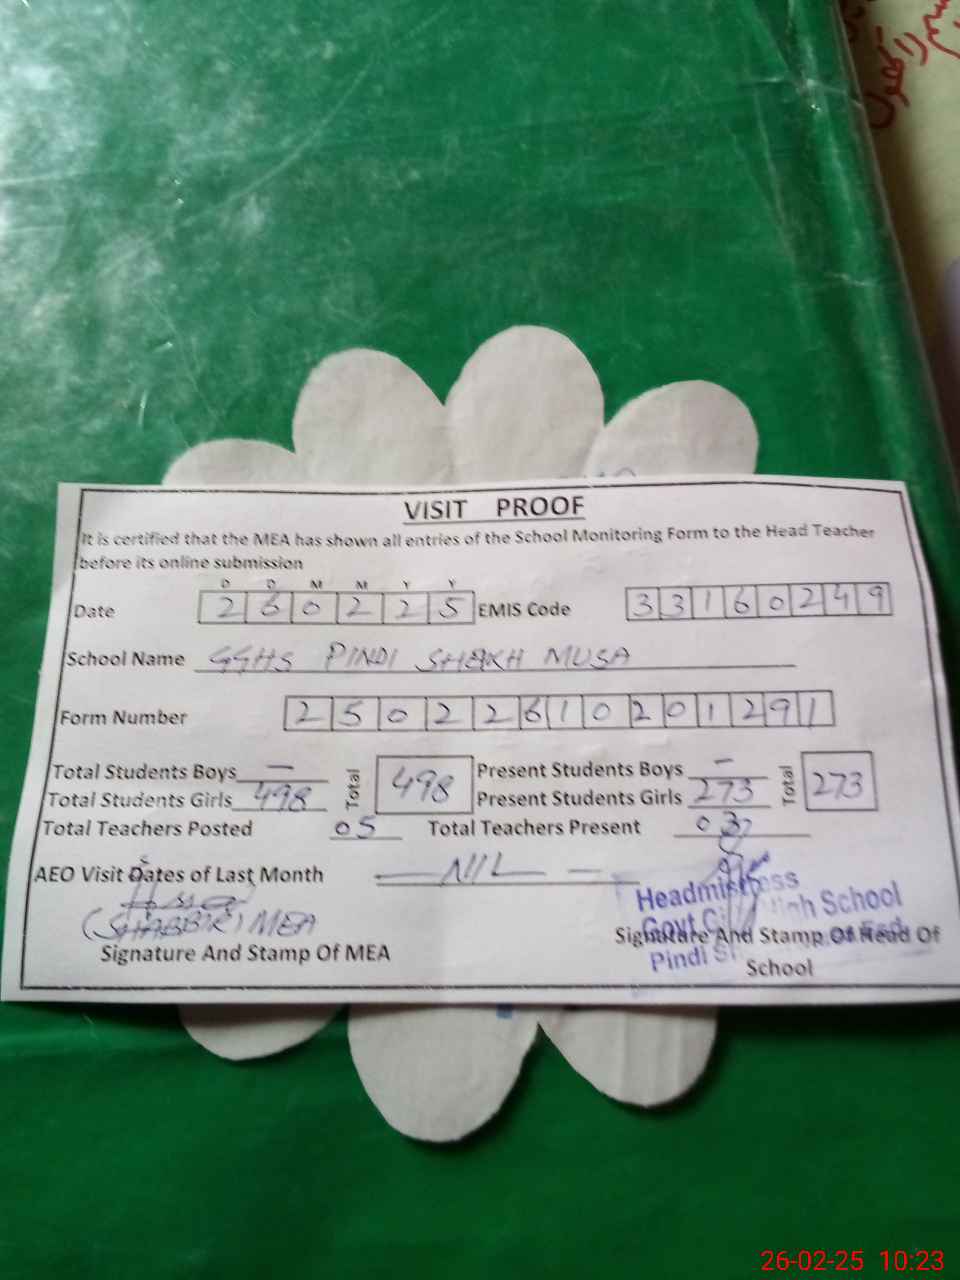 VISIT PROOF
It is certified that the MEA has shown all entries of the School Monitoring Form to the Head Teacher
before its online submission
D D M M Y Y
Date 2 6 0 2 2 5 EMIS Code 3 3 1 6 0 2 4 9
School Name GGHS PINDI SHEKH MUSA
Form Number 2 5 0 2 2 6 1 0 2 0 1 2 9 1
Total Students Boys — Total 498 Present Students Boys — Total 273
Total Students Girls 498 Present Students Girls 273
Total Teachers Posted 05 Total Teachers Present 03
AEO Visit Dates of Last Month — NIL —
Headmistress
Govt. High School
Pindi
(SHABBIR) MEA
Signature And Stamp Of MEA
Signature And Stamp Of Head Of
School
26-02-25 10:23